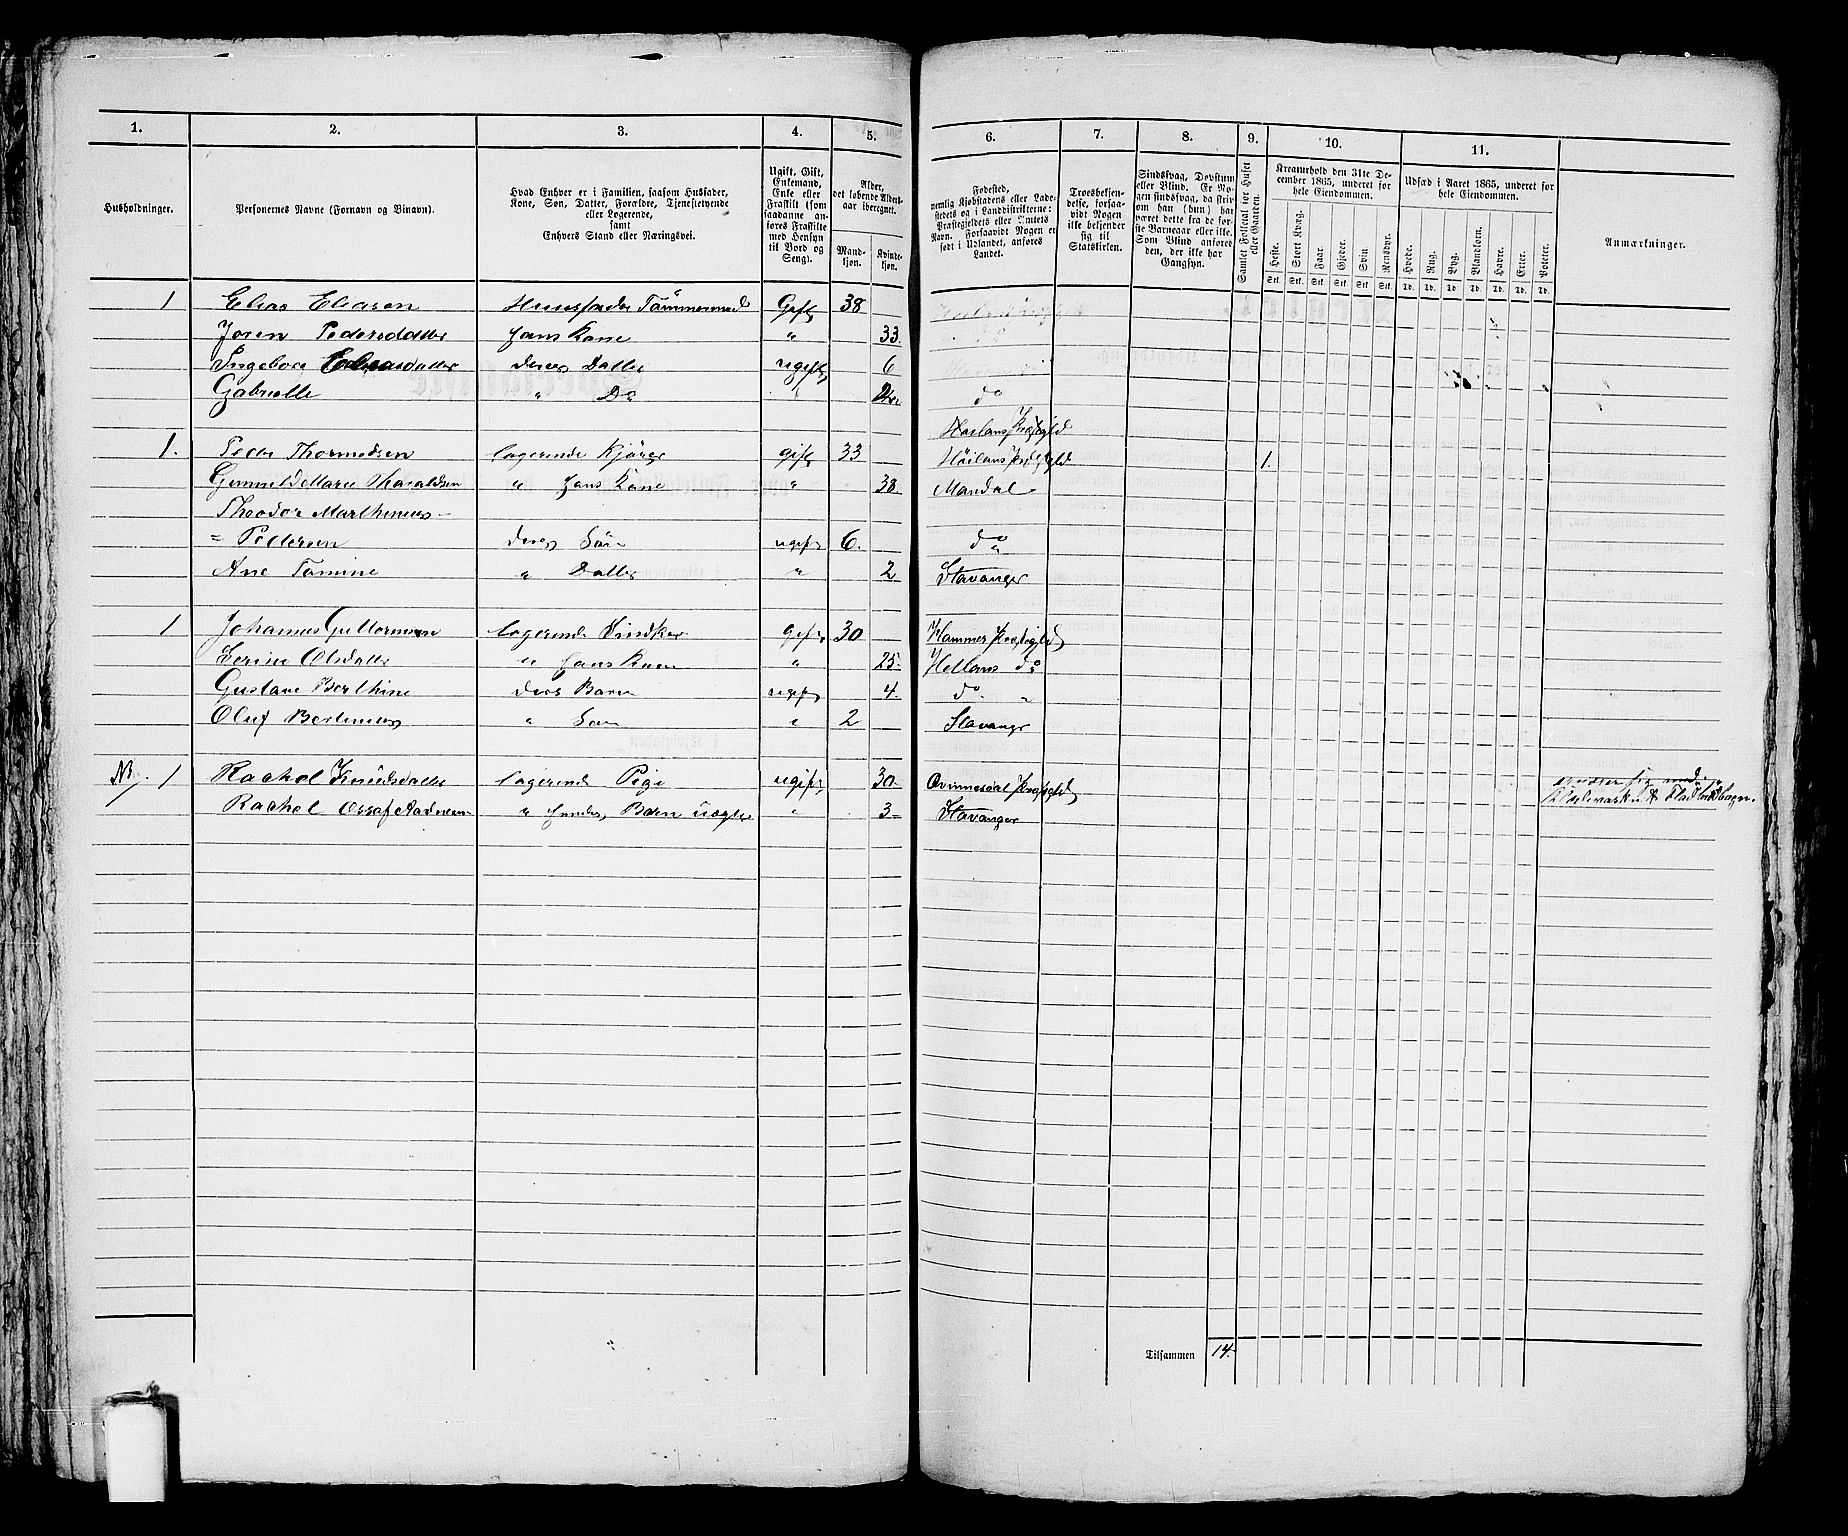 1. 2. 3. 4. 5. 6. 7. 8. 9. 10. 11.
Husholdninger.
Personernes Navne (Fornavn og Binavn).
Hvad Enhver er i Familien, saasom Husfader,
Kone, Søn, Datter, Forældre, Tjenestetyende
eller Logerende,
samt
Enhvers Stand eller Næringsvei.
Ugift, Gift,
Enkemand,
Enke eller
Fraskilt (som
saadanne an-
føres Fraskilte
med Hensyn
til Bord og
Seng).
Alder,
det løbende Alders-
aar iberegnet.
Mand-
kjøn.
Kvinde-
kjøn.
Fødested,
nemlig Kjøbstadens eller Lade-
stedets og i Landdistrikterne:
Præstegjeldets eller Amtets
Navn. Forsaavidt Nogen er
født i Udlandet, anføres
Landet.
Troesbekjen-
delse, forsaa-
vidt Nogen
ikke bekjender
sig til
Statskirken.
Sindssvag, Døvstum
eller Blind. Er No-
gen sindssvag, da skriv
om han (hun) har
været dette fra de før-
ste Barneaar eller ikke.
Som Blind anføres
den, der ikke har
Gangsyn.
Samlet Folketal for Huset
eller Gaarden.
Kreaturhold den 31te De-
cember 1865, underet for
hele Eiendommen.
Heste. Stort Kvæg. Faar. Gjeder. Svin. Rensdyr.
Stk. Stk. Stk. Stk. Stk. Stk.
Udsæd i Aaret 1865, underet for
hele Eiendommen.
Hvede. Rug. Byg. Blandkorn. Havre. Erter. Poteter.
Td. Td. Td. Td. Td. Td. Td.
Anmærkninger.
1 Elias Eliasen Huusfader Tömmermd Gift 38
Joren Pedersdatter Hans Kone " 33
Ingeborg Eliasdatter Deres Datter ugift 6
Gabrielle " Do " do
Præstegjld
1. Peder Thormodsen Logerende gift 33 Præstegjld 1.
Marie " Hans Kone " 38 Mandal
Theodor Marthinius
= Pedersen Deres Sön ugift 6. do
Ane Tomine " Datter " 2 Stavanger
1 Johannes Guttormsen Logerende gift 30 Hammer Præstegjld
Serine Olsdatter " Hans Kone " 25 do
Gustave Berthine Deres Barn ugift 4. do "
Oluf " Sön " 2 Stavanger
1 Rachel Knudsdatter Logerende Pige ugift 30 Qvinnesdal Præstegjld
Rachel " Hendes Barn uægte " 3 Stavanger
Tilsammen 14.